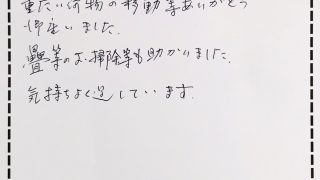 重たい荷物の移動等ありがとう
御座いました。
畳等のお掃除等も助かりました。
気持ちよく過しています。